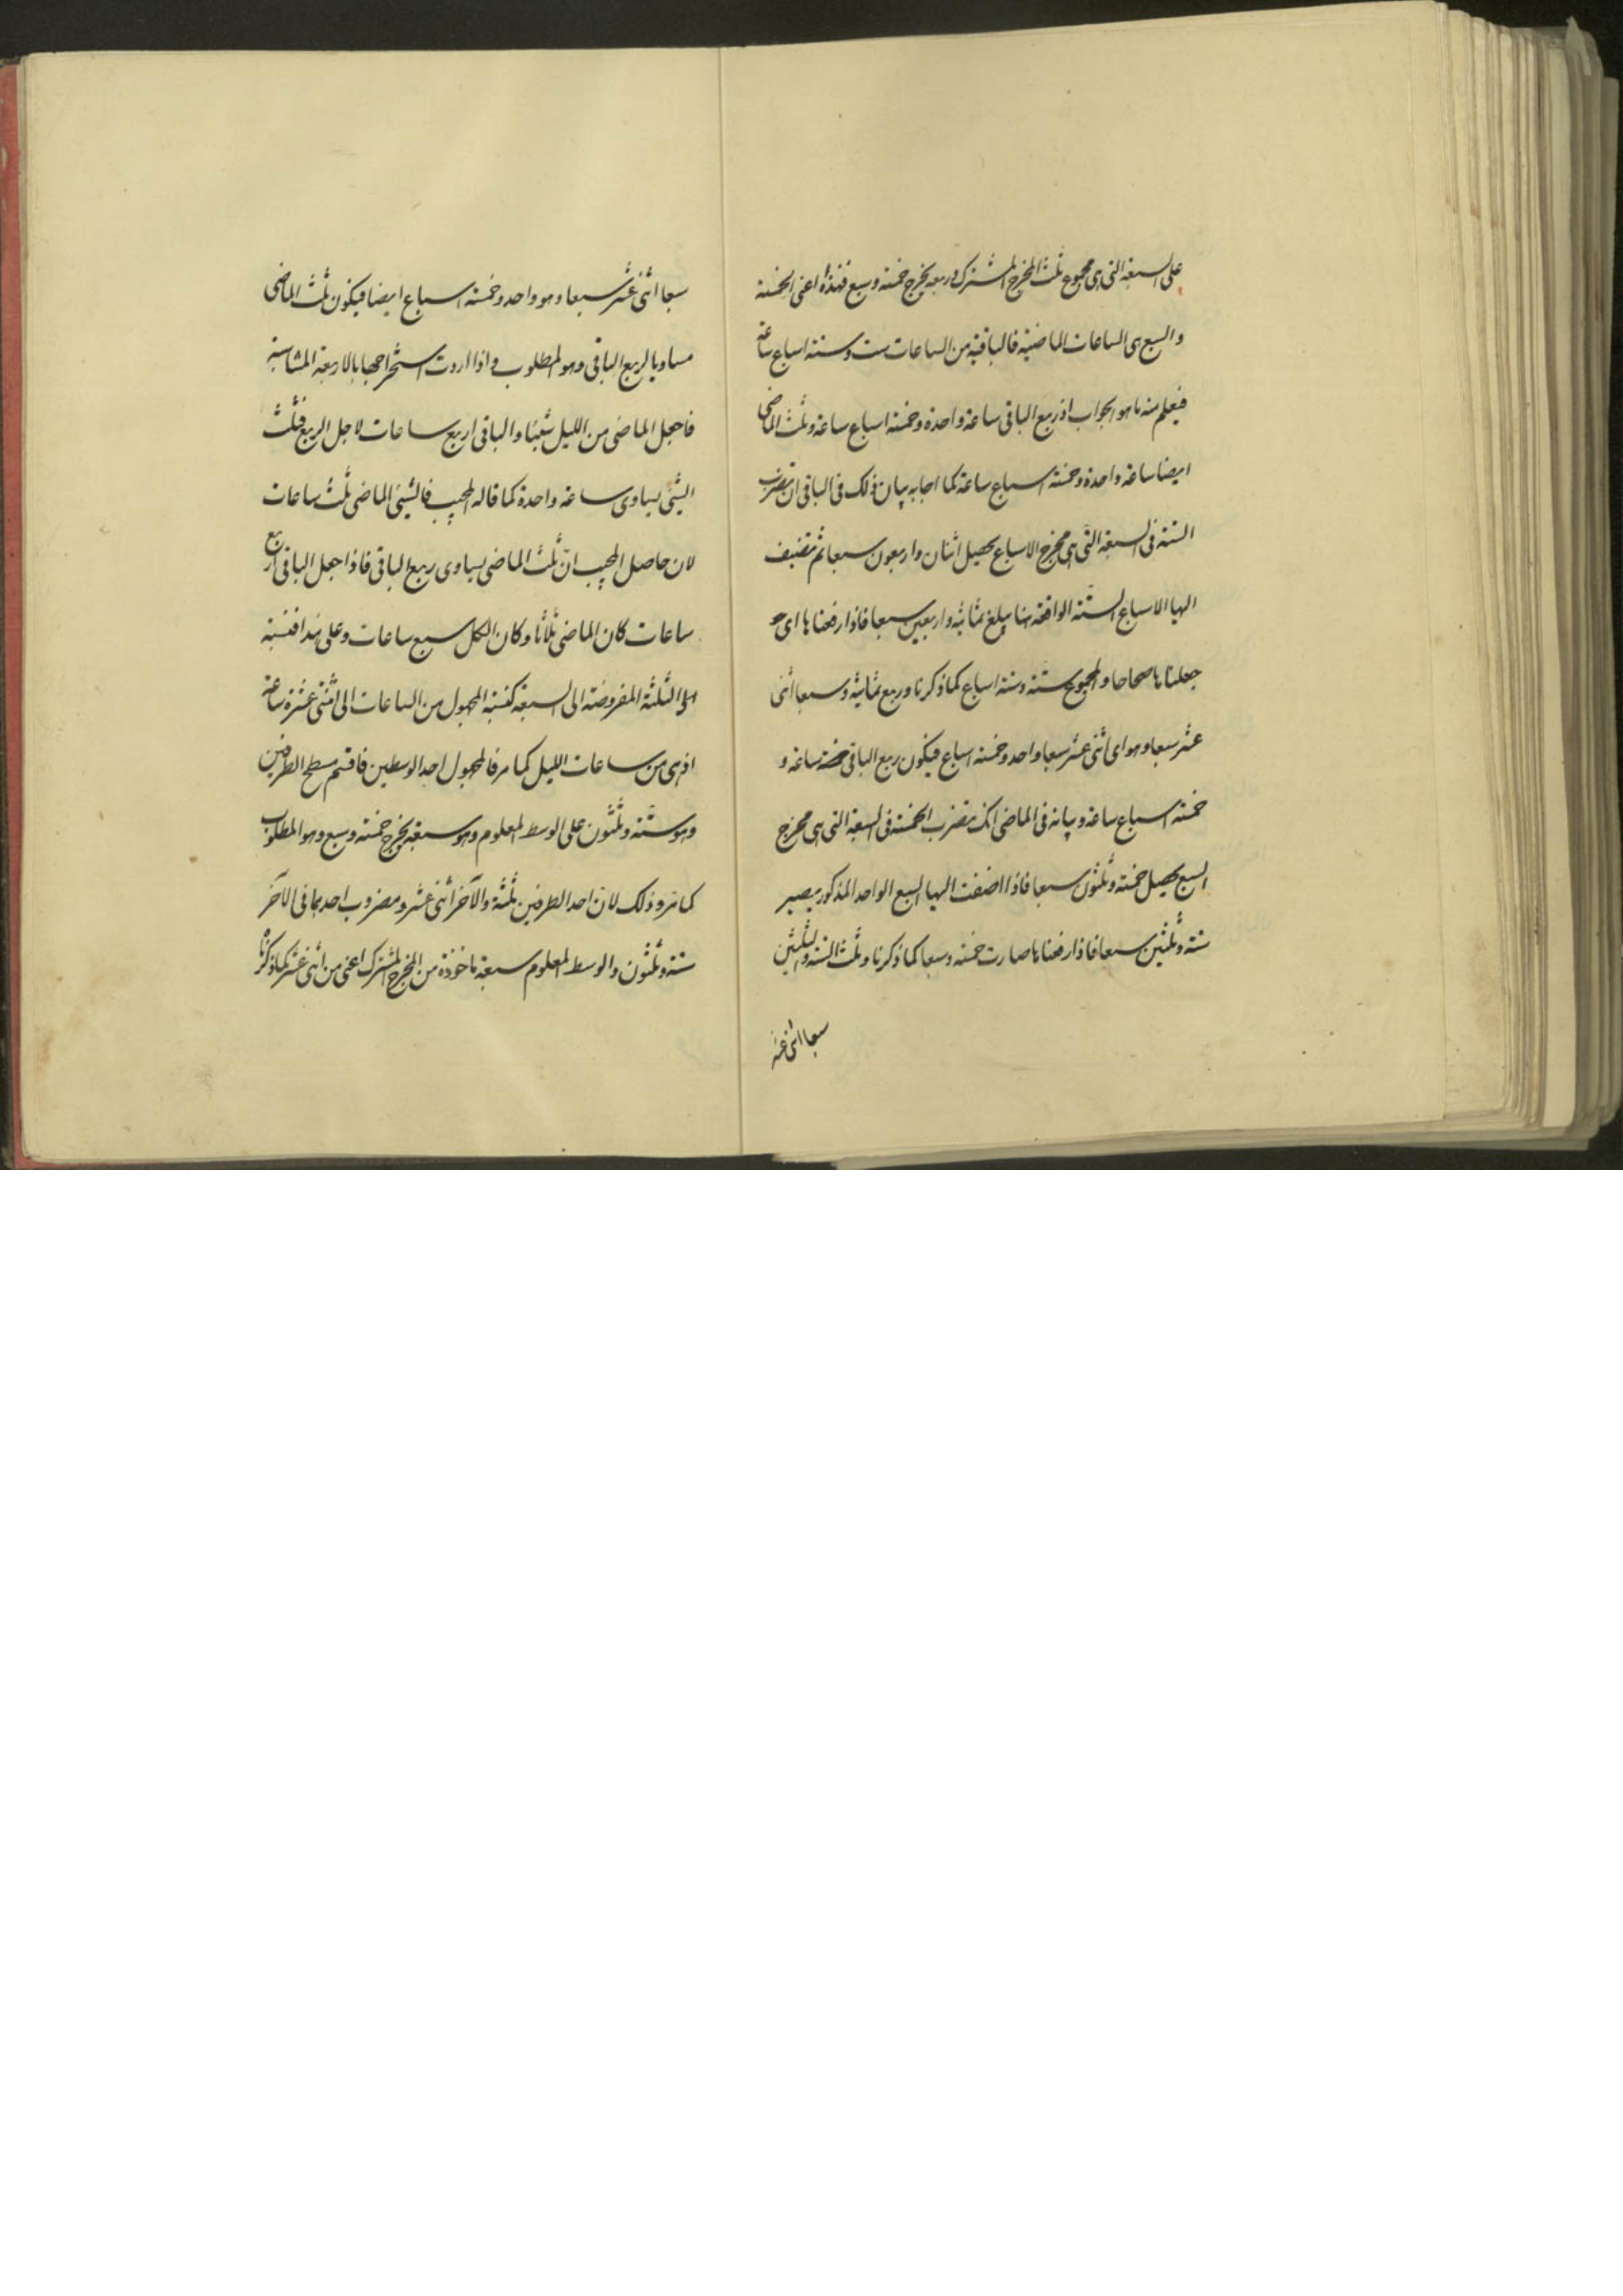 على السبعة التى هى مجموع ثلث المخرج المشترك وربعه يخرج خمسة وسبع فهذه اعنى الخمسة
والسبع هى الساعات الماضية فالباقية من الساعات ست وستة اسباع ساعة
فيعلم منه ما هو الجواب اذ ربع الباقى ساعة واحدة وخمسة اسباع ساعة وثلث الماضى
ايضا ساعة واحدة وخمسة اسباع ساعة كما اجابه بيان ذلك فى الباقى ان تضرب
الستة فى السبعة التى هى مخرج الاسباع يحصل اثنان واربعون سبعا ثم تضيف
اليها الاسباع الستة الواقعة هنا يبلغ ثمانية واربعين سبعا فاذا رفعناها اى
جعلناها صحاحا والمجموع ستة وستة اسباع كما ذكرنا وربع ثمانية وسبعا اثنى
عشر سبعا وهو اى اثنى عشر سبعا واحد وخمسة اسباع فيكون ربع الباقى ساعة و
خمسة اسباع ساعة وبيانه فى الماضى انك تضرب الخمسة فى السبعة التى هى مخرج
السبع يحصل خمسة وثلثون سبعا فاذا اضفت اليها السبع الواحد المذكور يصير
ستة وثلثين سبعا فاذا رفعناها صارت خمسة وسبعا كما ذكرنا وثلث الستة والثلثين
سبعا اثنى عشر
سبعا اثنى عشر سبعا وهو واحد وخمسة اسباع ايضا فيكون ثلث الماضى
مساويا لربع الباقى وهو المطلوب واذا اردت استخراجها بالاربعة المتناسبة
فاجعل الماضى من الليل شيئا والباقى اربع ساعات لاجل الربع فثلث
الشئ يساوى ساعة واحدة كما قاله المجيب فالشئ الماضى ثلث ساعات
لان حاصل المجيب ان ثلث الماضى يساوى ربيع الباقى فاذا جعل الباقى اربع
ساعات كان الماضى ثلاثا وكان الكل سبع ساعات وعلى هذا فنسبة
الثلثة المفروضة الى السبعة كنسبة المجهول من الساعات الى اثنتى عشرة ساعة
اذ هى من ساعات الليل كما مر فالمجهول احد الوسطين فاقسم مسطح الطرفين
وهو ستة وثلثون على الوسط المعلوم وهو سبعة يخرج خمسة وسبع وهو المطلوب
كما مر وذلك لان احد الطرفين ثلثة والآخر اثنى عشر ومضروب احدهما فى الآخر
ستة وثلثون والوسط المعلوم سبعة ماخوذة من المخرج المشترك اعنى من اثنى عشر كما ذكرنا